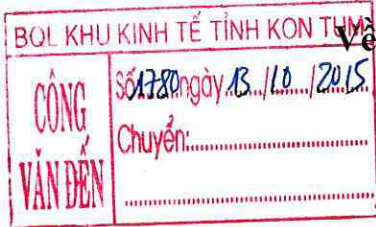 BQL KHU KINH TẾ TỈNH KON TUM
Về
CÔNG
VĂN ĐẾN
Số 1780 ngày 13 / 10 / 2015
Chuyển: